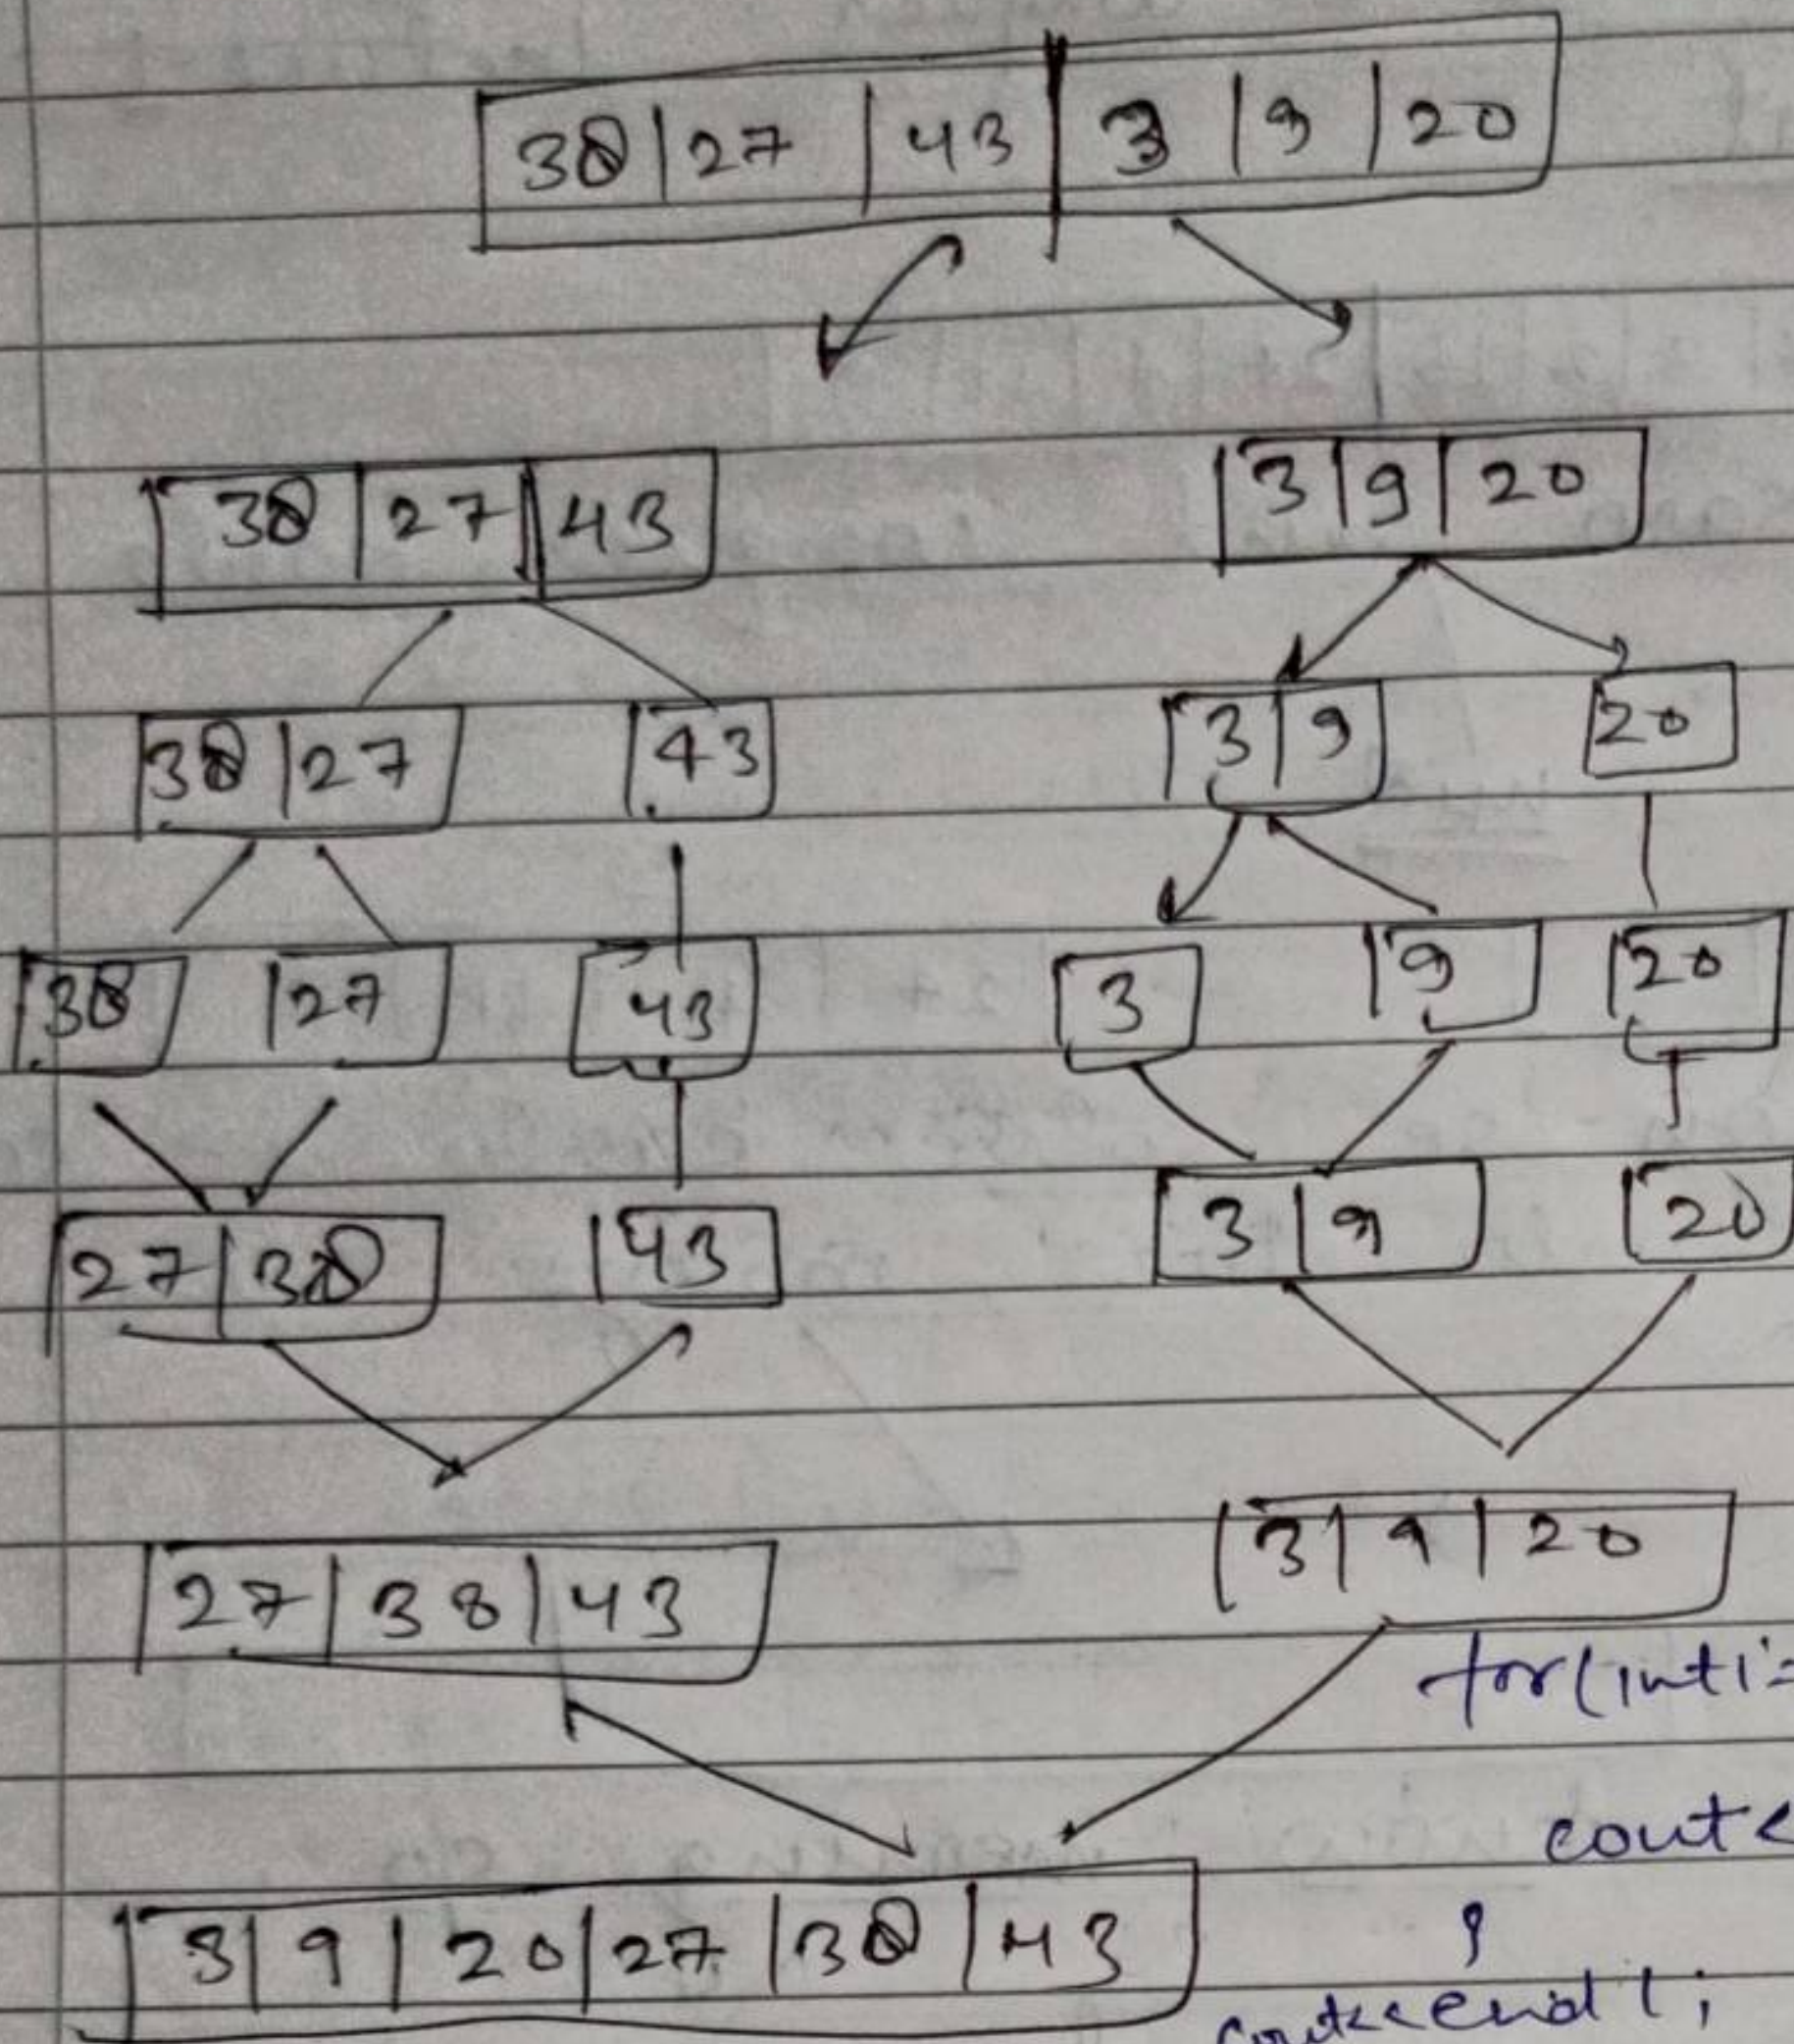 38 | 27 | 43 | 3 | 9 | 20
38 | 27 | 43
3 | 9 | 20
38 | 27
43
3 | 9
20
38
27
43
3
9
20
27 | 38
43
3 | 9
20
27 | 38 | 43
3 | 9 | 20
for(inti=
cout<
3 | 9 | 20 | 27 | 38 | 43
}
cout<<endl;